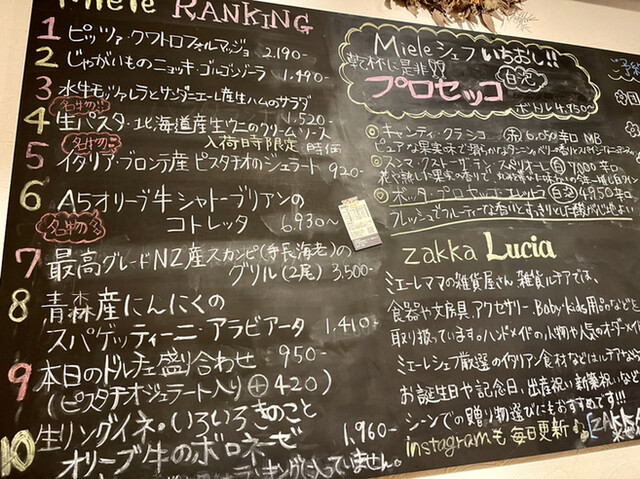 Miele RANKING
1 ピッツァ・クワトロフォルマッジョ 2,190-
2 じゃがいものニョッキ・ゴルゴンゾーラ 1,490-
3 水牛モッツァレラとサンダニエーレ産生ハムのサラダ
名物!! 1,520-
4 生パスタ・北海道産生ウニのクリームソース
名物!! 入荷時期限定 時価
5 イタリア・ブロンテ産ピスタチオのジェラート 920-
6 A5オリーブ牛シャトーブリアンの
名物 コトレッタ 6,930〜
7 最高グレードNZ産スカンピ(手長海老)の
グリル(2尾) 3,500-
8 青森産にんにくの
スパゲッティーニ・アラビアータ 1,410-
9 本日のドルチェ盛り合わせ 950-
(ピスタチオジェラート入り+420)
10 生リングイネ・いろいろきのこと
オリーブ牛のボロネーゼ 1,960-
ランキングに入っていません。
Mieleシェフいちおし!!
乾杯に是非
プロセッコ 白泡
ボトル4,950
◎キャンティ・クラシコ 赤 6,050 辛口 MB
ピュアな果実味で
白 7,000 辛口
◎ボッタ・プロセッコ 白泡 4950 辛口
フレッシュでフルーティーな香りとすっきりとした酸が心地よい
zakka Lucia
ミエーレママの雑貨屋さん 雑貨ルチアでは、
食器や文房具、アクセサリー、Baby・kids用品などを
取り扱っています。ハンドメイドの小物や人気のオーダーメイド
ミエーレシェフ厳選のイタリアン食材などは
お誕生日や記念日、出産祝い 新築祝いなど
シーンでの贈り物選びにもおすすめです!!!
instagramも毎日更新